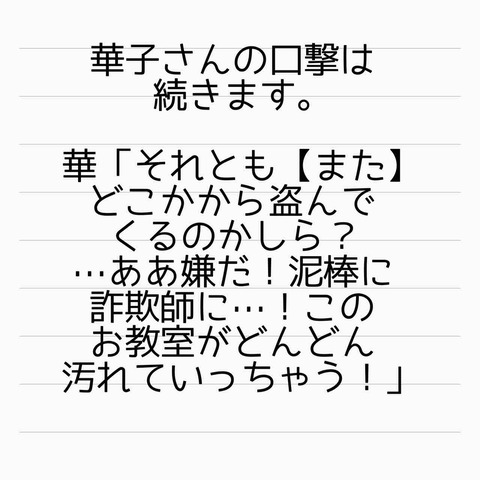 華子さんの口撃は
続きます。
華「それとも【また】
どこかから盗んで
くるのかしら？
…ああ嫌だ！泥棒に
詐欺師に…！この
お教室がどんどん
汚れていっちゃう！」